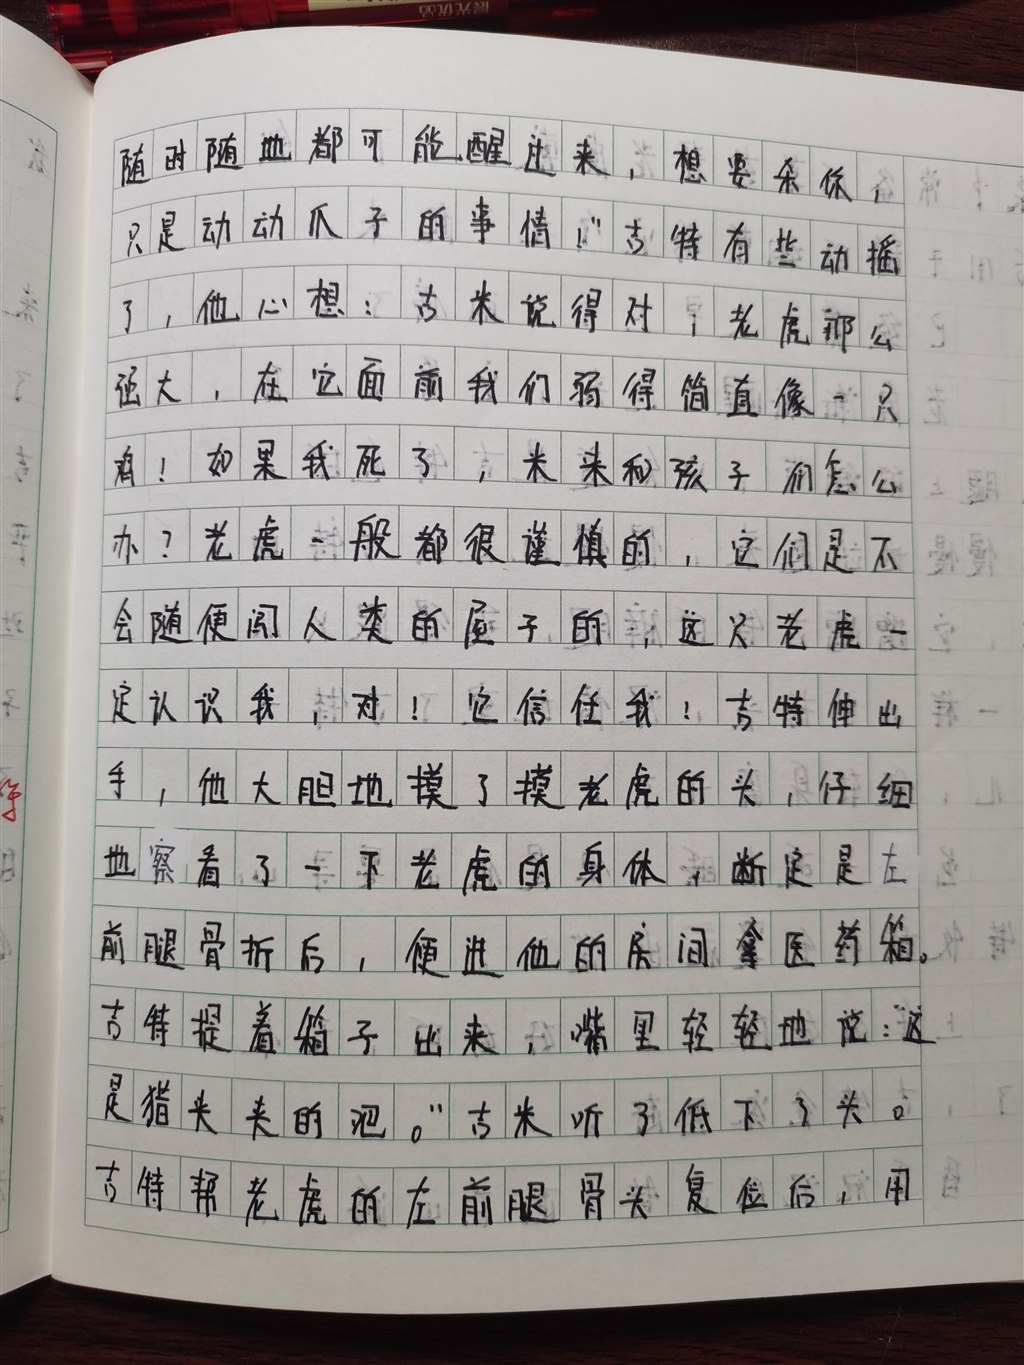 晨光优品
随时随地都可能醒过来，想要杀你，
只是动动爪子的事情！"吉特有些动摇
了，他心想：吉米说得对，老虎那么
强大，在它面前我们弱得简直像一只
鸡！如果我死了，米来和孩子们怎么
办？老虎一般都很谨慎的，它们是不
会随便闯人类的屋子的，这只老虎一
定认识我，对！它信任我！吉特伸出
手，他大胆地摸了摸老虎的头，仔细
地察看了一下老虎的身体，断定是左
前腿骨折后，便进他的房间拿医药箱。
吉特提着箱子出来，嘴里轻轻地说：这
是猎夹夹的吧。"吉米听了低下了头。
吉特帮老虎的左前腿骨头复位后，用